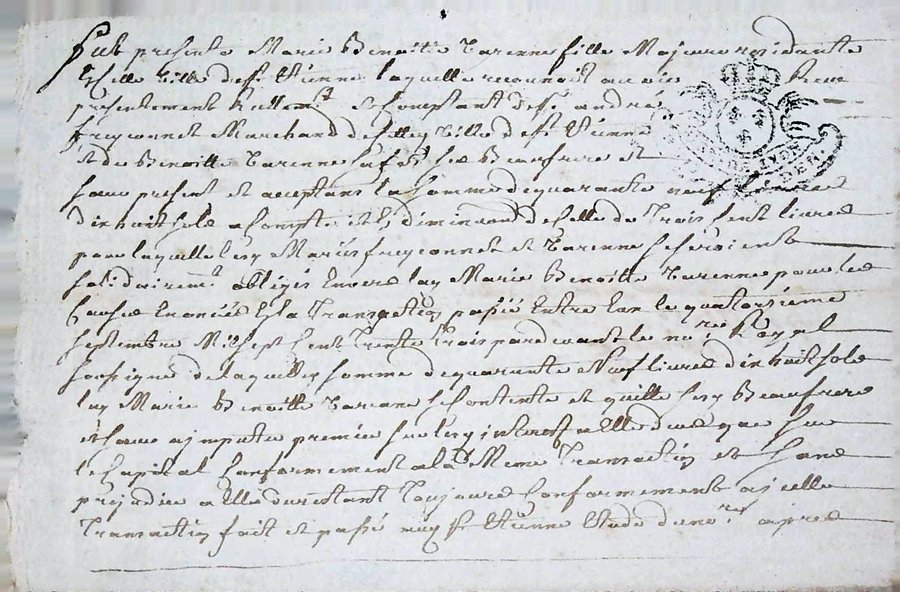 fut presente Marie Benoitte Varenne fille Majeure residente
En cette Ville de St Etienne laquelle reconnoit avoir Receu
presentement Reellemt et Comptant de Sr andré
freyconnet Marchand de cette Ville de St Etienne
et de Benoitte Varenne sa fe ses Beaufrere et
soeur present et acceptans la somme de quarante neuf livres
dix huit sols a Compte et En diminuon de Celle de Trois Cent livres
pour laquelle lesd Mariés freyconnet et Varenne se seroient
solidairemt obligés Envers lad Marie Benoitte Varenne pour les
Causes Enoncées En la Transaction passée Entre Eux le quatorzieme
septembre Mil sept Cent Trente Trois pardevant le nore Royal
soussigné de laquelle somme de quarante Neuf livres dix huit sols
lad Marie Benoitte Varenne se Contente et quitte sesd Beaufrere
et soeur a imputer premier sur les interest a Elle dus que sur
le Capital Conformement a la de Meme Transaction et sans
prejudice a Elle du restant Toujours Conformement a icelle
Transaction fait et passé aud St Etienne Etude du nore apres